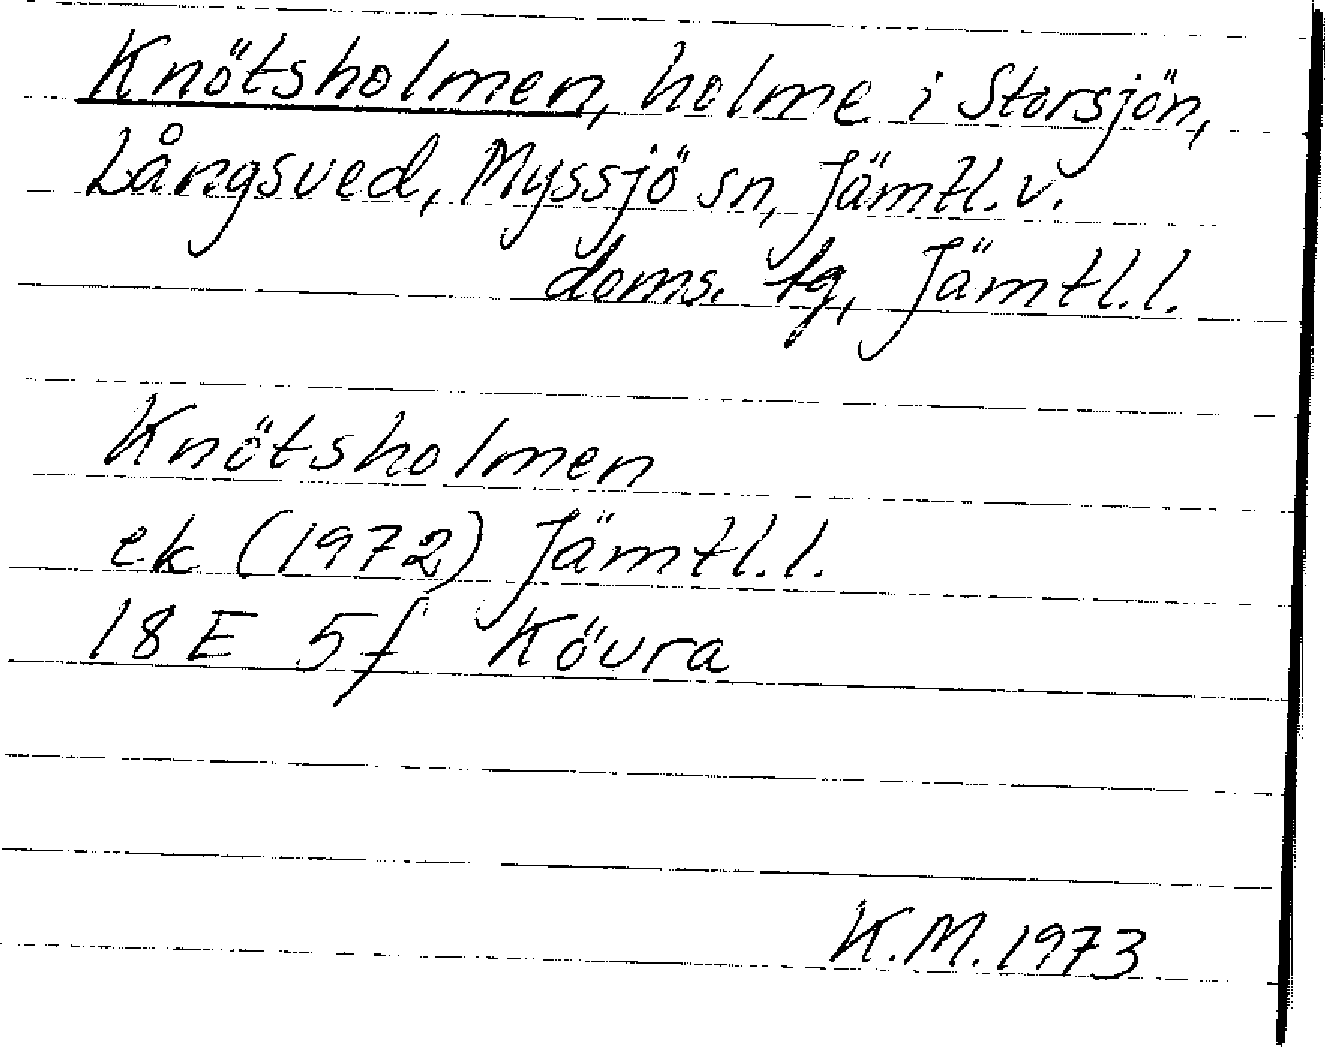 Knötsholmen, holme i Storsjön,
Långsved, Myssjö sn, Jämtl. v.
doms. tg, Jämtl. l.
Knötsholmen
ek (1972) Jämtl. l.
18 E 5f Kövra
K.M. 1973